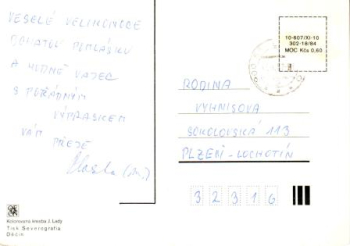 VESELÉ VELIKONOCE
BOHATOU POMLÁZKU
A HODNĚ VAJEC
S POŘÁDNÝM
VÝPRASKEM
VÁM PŘEJE
10-607/XI-10
302-18/84
MOC Kčs 0,60
RODINA
VYHNISOVA
SOKOLOVSKÁ 113
PLZEŇ - LOCHOTÍN
3 2 3 1 6
Kolorovaná kresba J. Lady
Tisk Severografia
Děčín